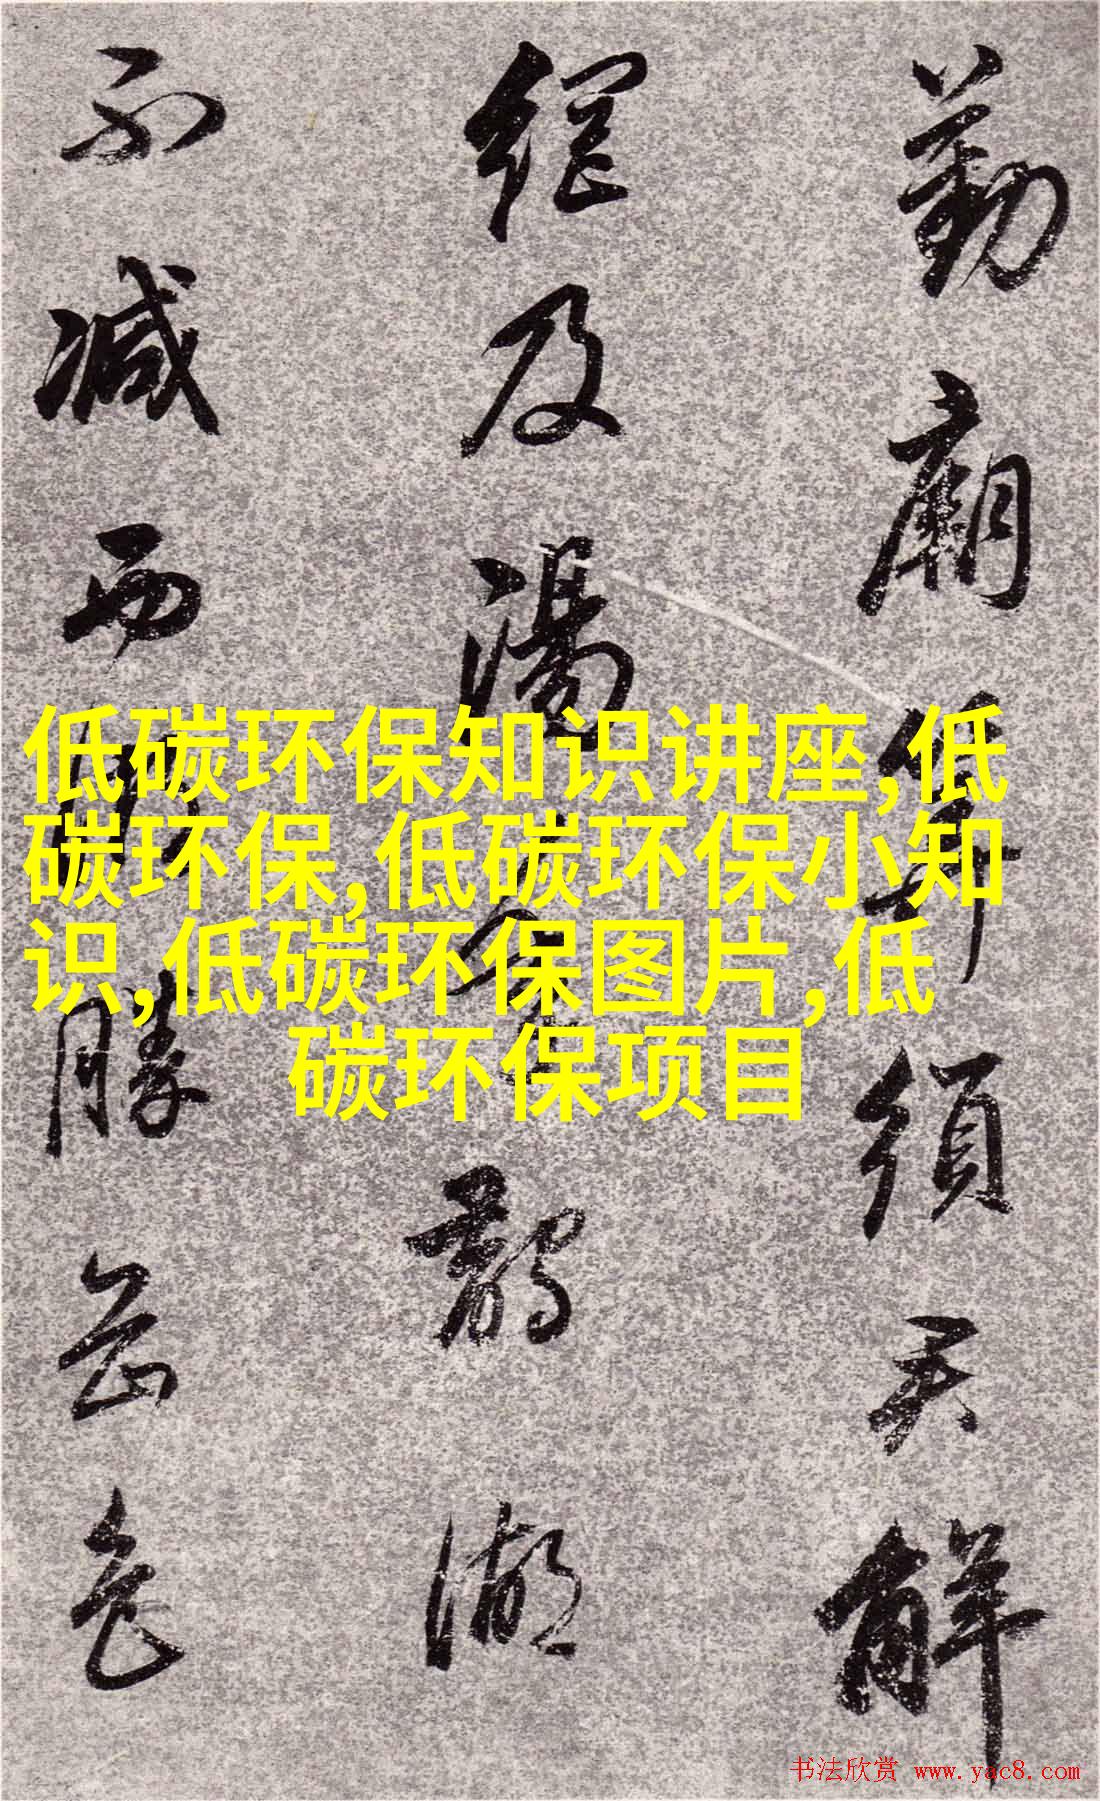 低碳环保知识讲座,低
碳环保,低碳环保小知
识,低碳环保图片,低
碳环保项目
勤廟算須君解
網及湯鵲湖
不減西勝岳色
书法欣赏 www.yac8.com